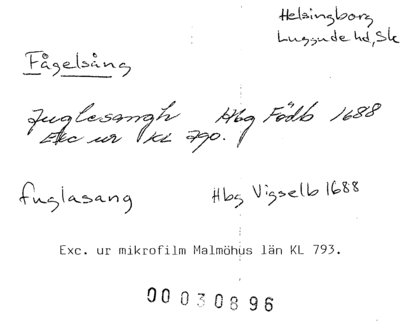 Helsingborg
Luggude hd, Sk
Fågelsång
Fuglesangh Hbg Födb 1688
Exc ur KL 790.
fuglasang Hbg Vigselb 1688
Exc. ur mikrofilm Malmöhus län KL 793.
00030896